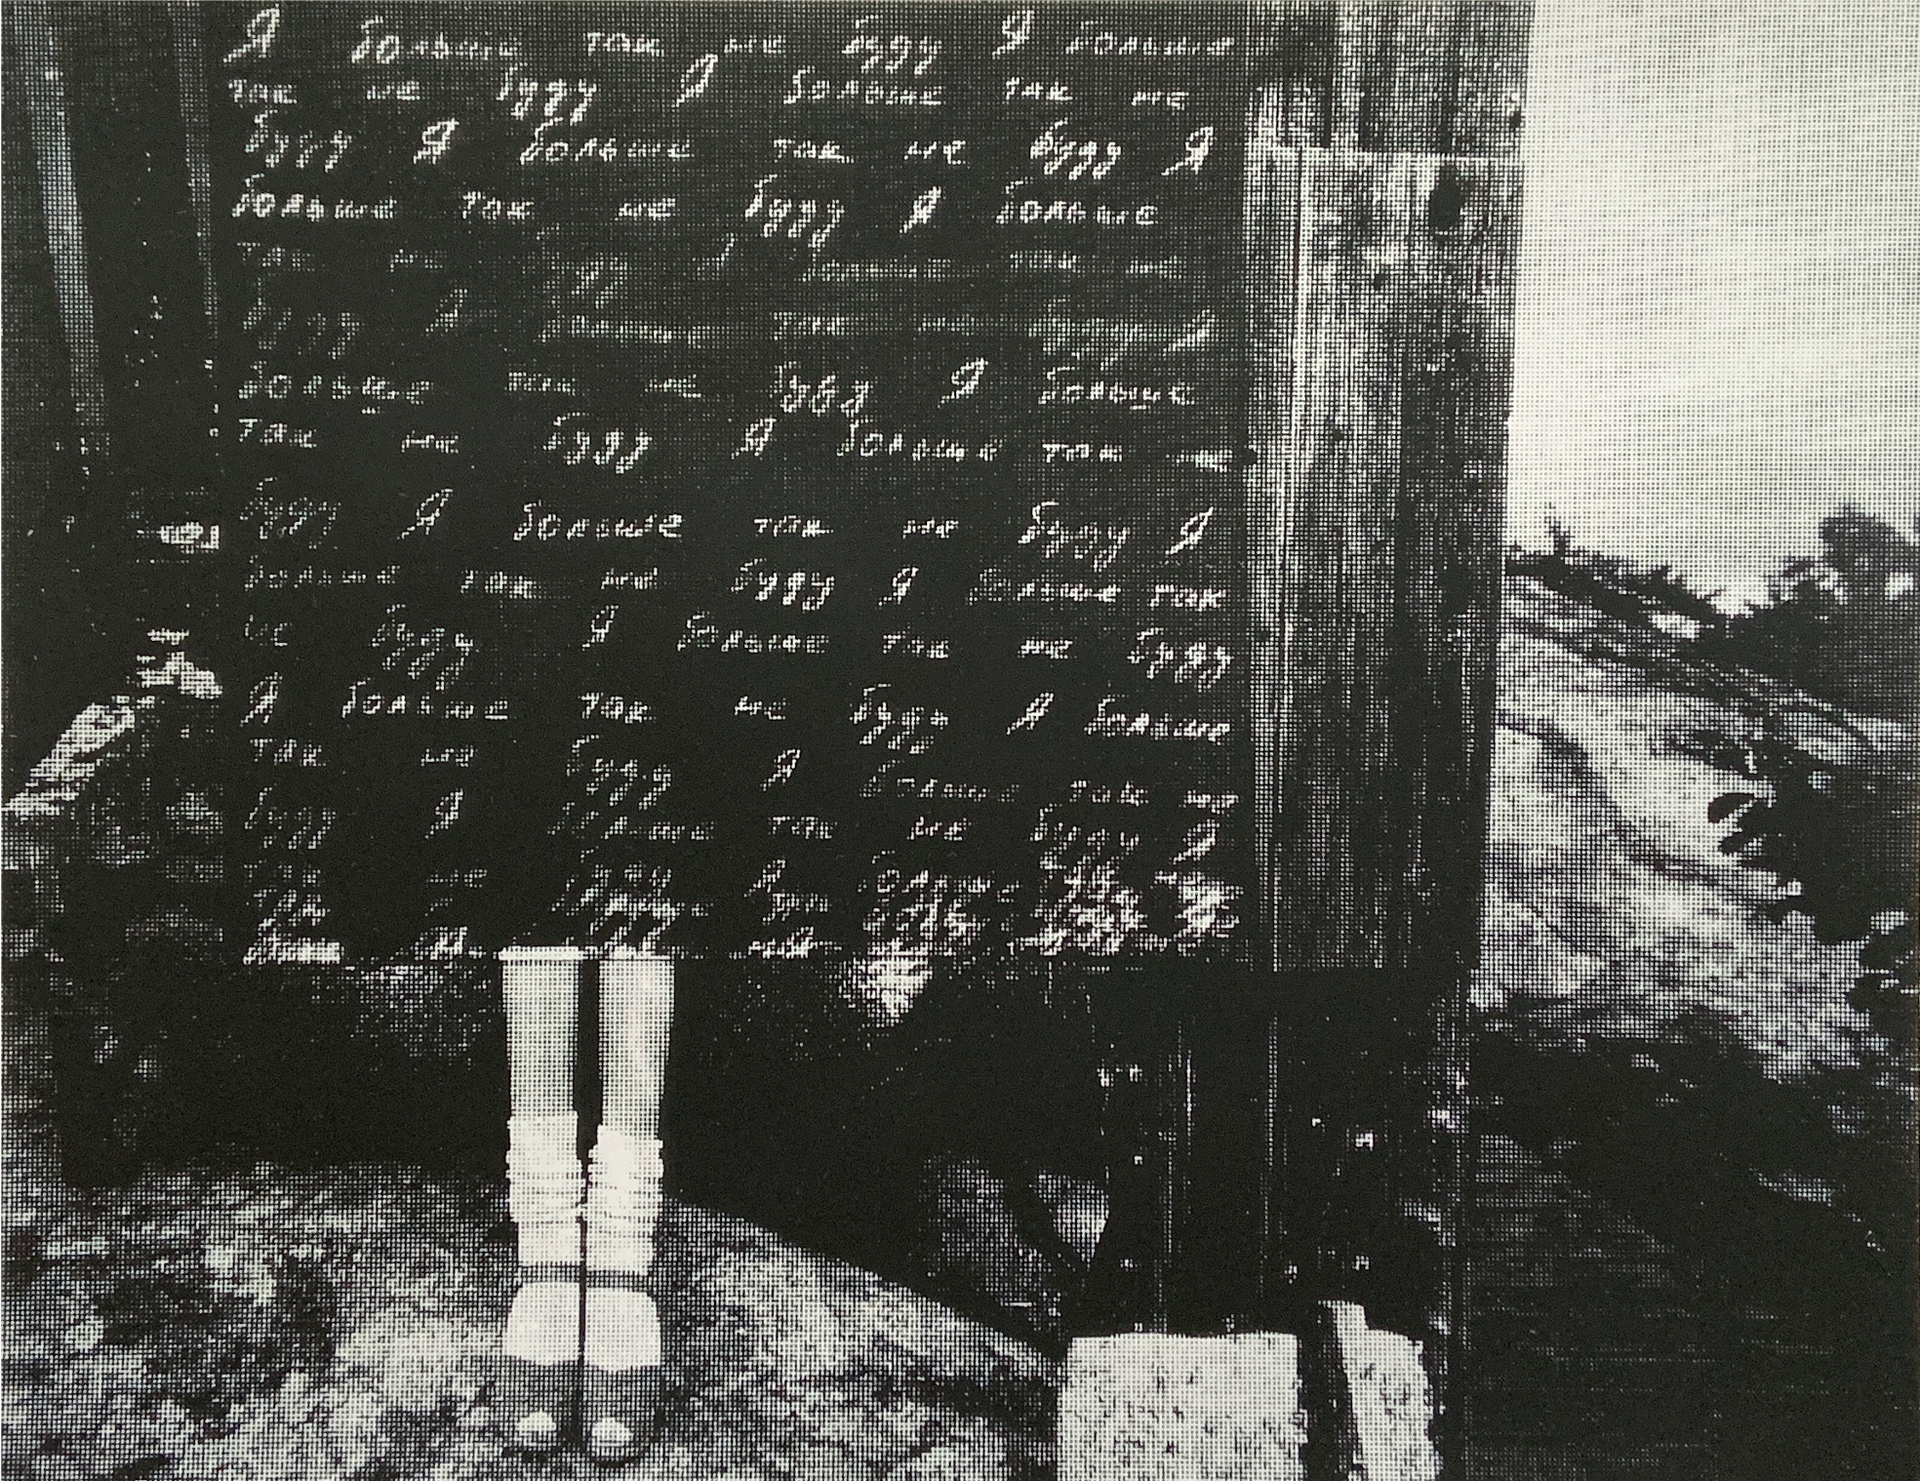 Я больше так не буду Я больше
так не буду Я больше так не
буду Я больше так не буду Я
больше так не буду Я больше
так не так не
буду Я так не буду Я
больше так не буду Я больше
так не буду Я больше так не
буду Я больше так не буду Я
больше так не буду Я больше так
не буду Я больше так не буду
Я больше так не буду Я больше
так не буду Я больше так не
буду Я больше так не буду Я